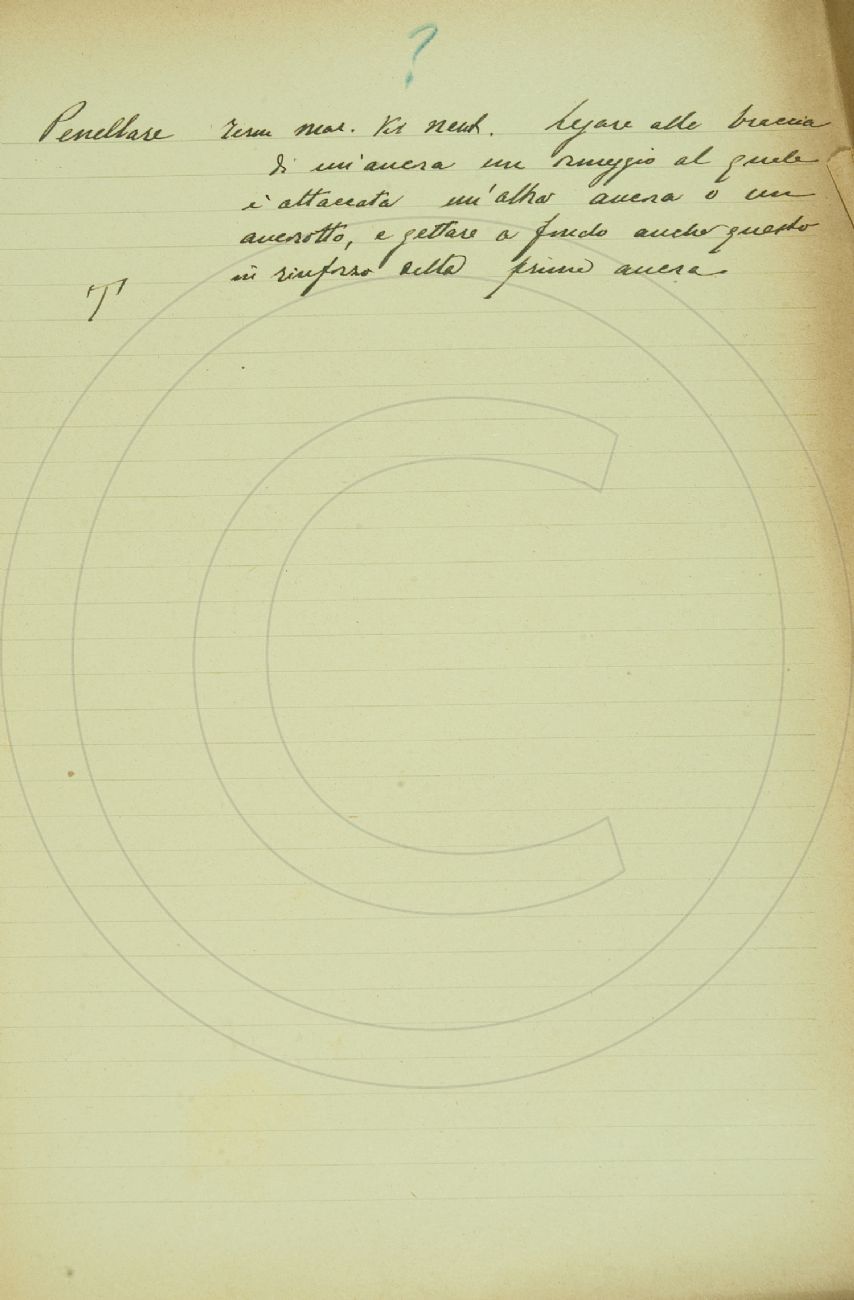 ?
Penellare Term mar. Vb neut. Legare alle braccia
di un'ancora un ormeggio al quale
è attaccata un'altra ancora o un
ancorotto, e gettare a fondo anche questo
in rinforzo della prima ancora.
T